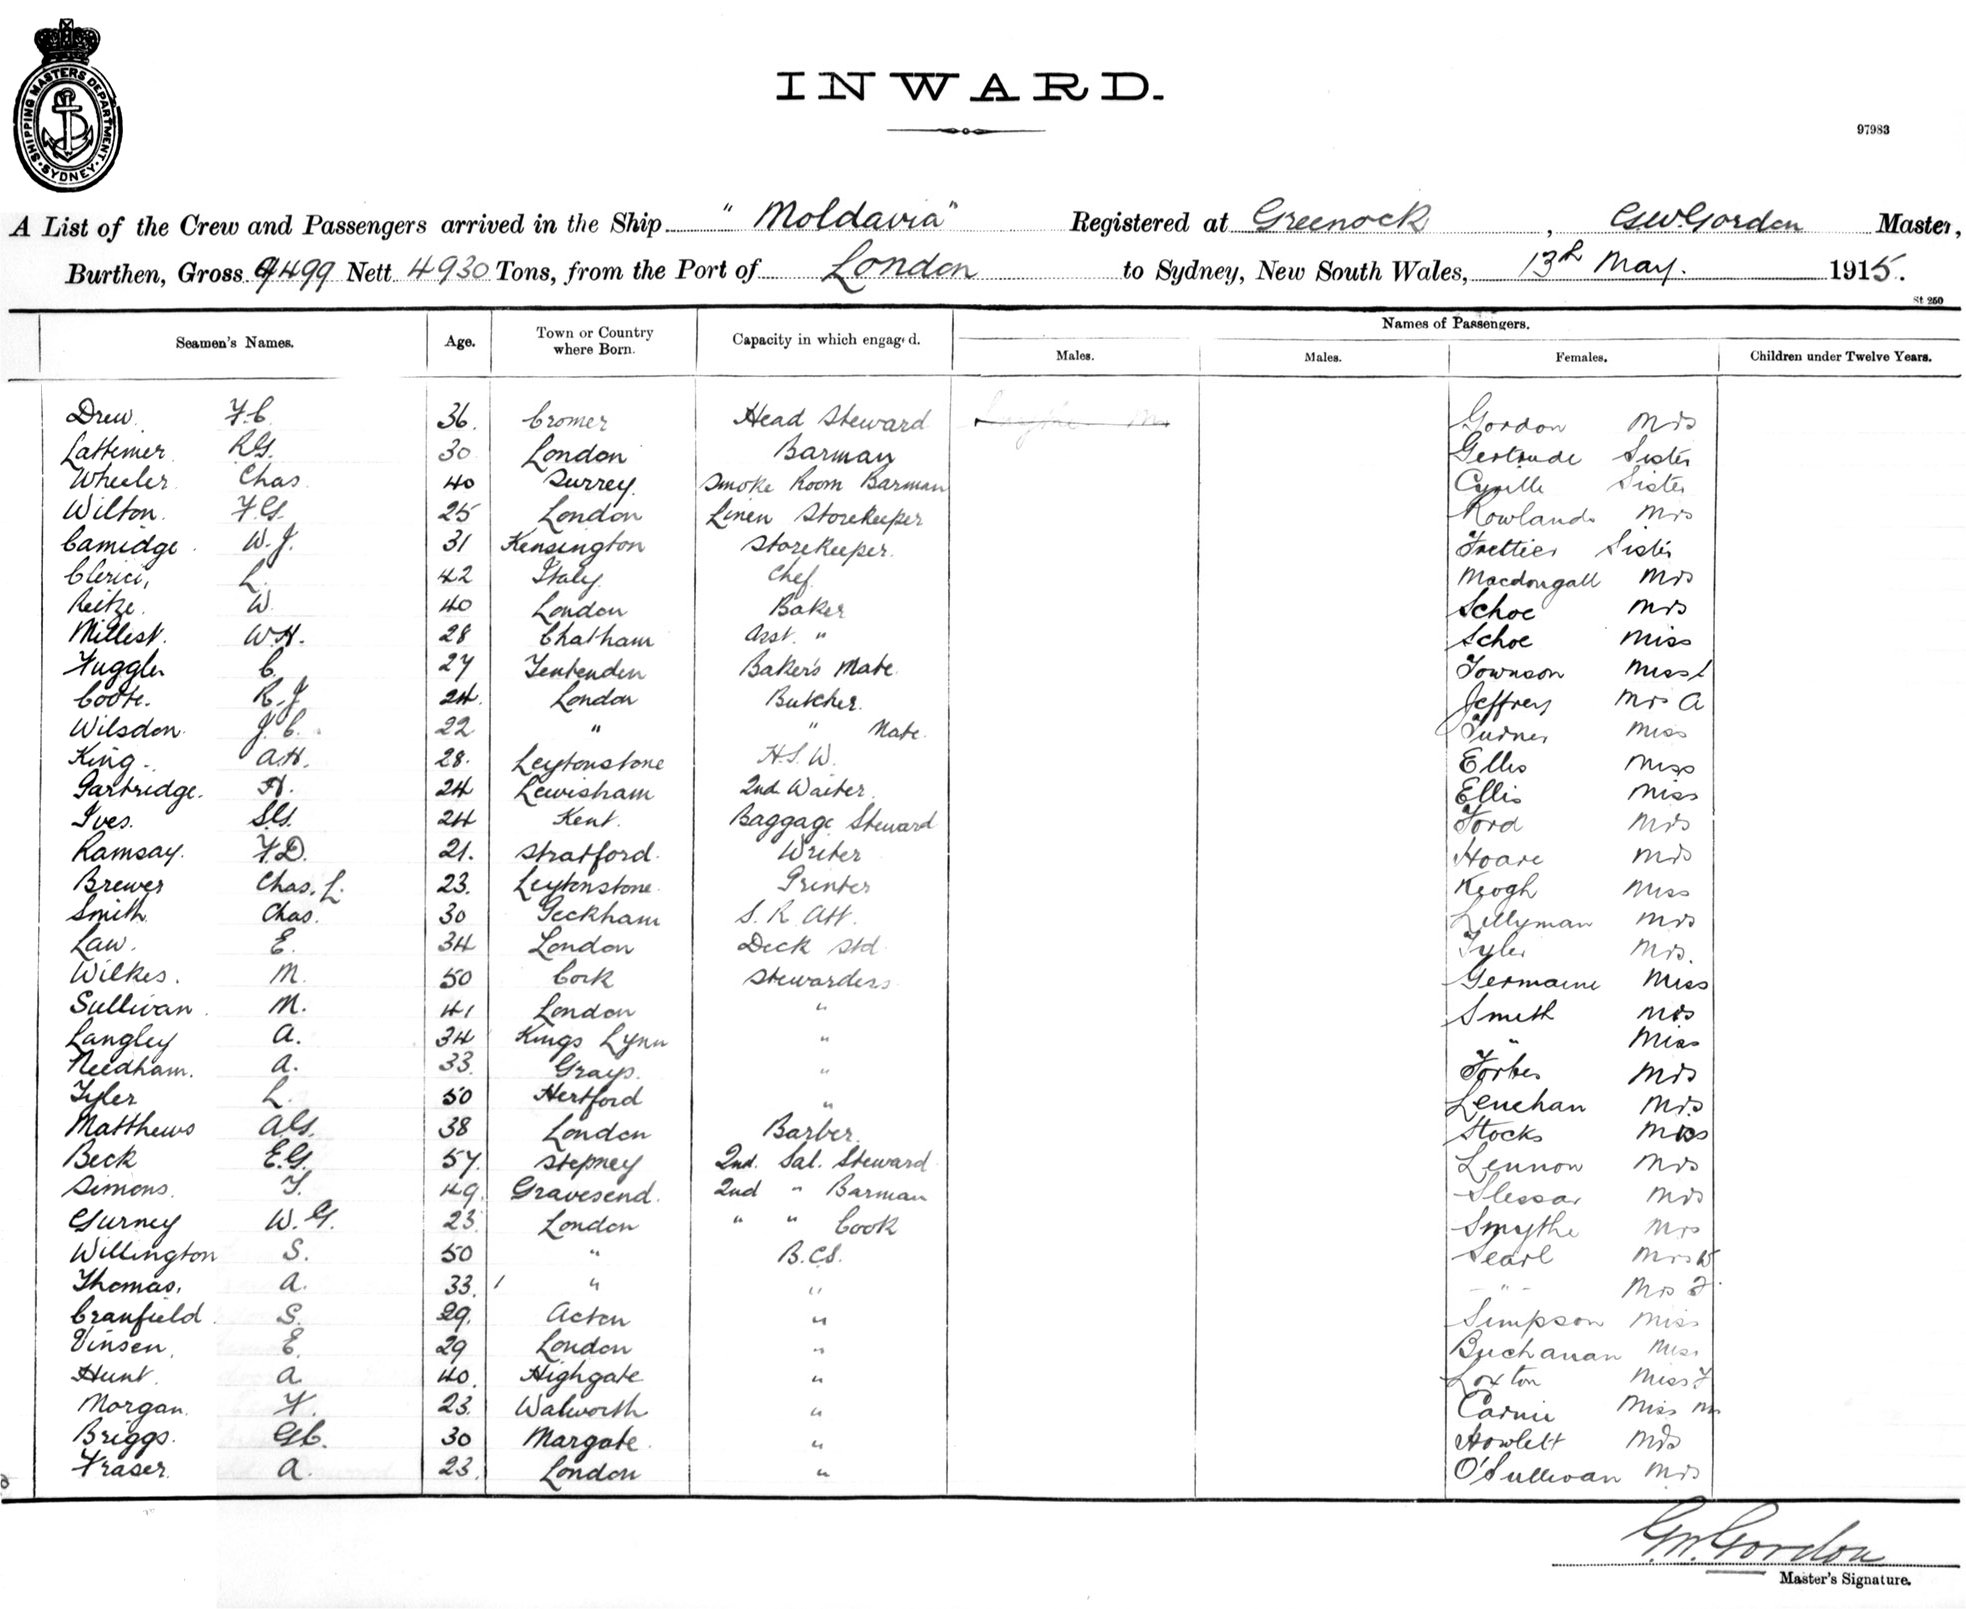 SHIPPING MASTERS DEPARTMENT. SYDNEY
INWARD.
97983
A List of the Crew and Passengers arrived in the Ship "Moldavia" Registered at Greenock, G.W. Gordon Master,
Burthen, Gross 9499 Nett 4930 Tons, from the Port of London to Sydney, New South Wales, 13th May. 1915.
St 250
Seamen's Names. Age. Town or Country where Born. Capacity in which engaged. Names of Passengers.
Males. Males. Females. Children under Twelve Years.
Drew. F.C. 36. Cromer Head Steward Gordon Mrs
Lattimer R.G. 30 London Barman Gertrude Sister
Wheeler Chas 40 Surrey. Smoke Room Barman Cyrille Sister
Wilton. F.G. 25 London Linen Storekeeper Rowlands Mrs
Camidge W.J. 31 Kensington Storekeeper. Sister
Clerici, L. 42 Italy. Chef. Macdougall Mrs
Reitze. W. 40 London Baker Schoe Mrs
Millest. W.H. 28 Chatham Asst. " Schoe Miss
Fuggle C. 27 Tenterden Baker's Mate. Townson Miss L
Coote. R.J. 24. London Butcher. Jeffrey Mrs A
Wilsdon J.C. 22 " " Mate. Turner Miss
King A.H. 28. Leytonstone H.S.W. Ellis Miss
Partridge. H. 24 Lewisham 2nd Waiter. Ellis Miss
Ives. S.G. 24 Kent. Baggage Steward Ford Mrs
Ramsay. F.D. 21. Stratford. Writer Hoare Mrs
Brewer Chas. L. 23. Leytonstone Printer Keogh Miss
Smith Chas. 30 Peckham S.R. Att. Lillyman Mrs
Law. E. 34 London Deck Std Tyler Mrs.
Wilkes. M. 50 Cork Stewardess Germaine Miss
Sullivan M. 41 London " Smith Mrs
Langley A. 34 Kings Lynn " " Miss
Needham. A. 33. Grays. " Forbes Mrs
Tyler L. 50 Hertford " Lenehan Mrs.
Matthews A.G. 38 London Barber. Stocks
Beck E.G. 57. Stepney 2nd. Sal. Steward Lennon Mrs
Simons. T. 49. Gravesend. 2nd " Barman Slessar Mrs
Gurney W.G. 23. London " " Cook Smythe Mrs
Willington S. 50 " B.C.S. Searl Mrs W
Thomas. A. 33. " " " Mrs F
Cranfield S. 29. Acton " Simpson Miss
Vinsen. E. 29 London " Buchanan Miss
Hunt. A. 40. Highgate " Loxton Miss F
Morgan. F. 23. Walworth " Carnie Miss M
Briggs. G.C. 30 Margate. " Howlett Mrs
Fraser. A. 23. London " O'Sullivan Mrs
G.W. Gordon
Master's Signature.